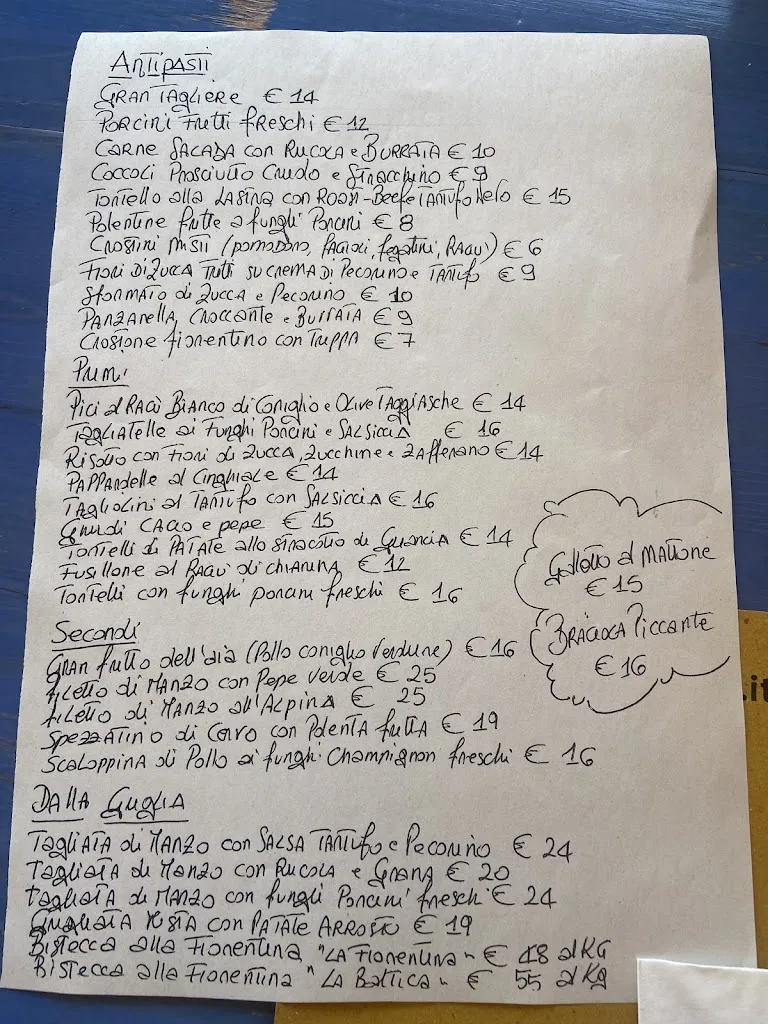 Antipasti
Gran Tagliere € 14
Porcini Fritti freschi € 12
Carne Salada con Rucola e Burrata € 10
Coccoli Prosciutto Crudo e Stracchino € 9
Tortello alla Lastra con Roast-Beef e Tartufo Nero € 15
Polentine fritte a funghi Porcini € 8
Crostini misti (pomodoro, fagioli, fegatini, Ragù) € 6
Fiori Di Zucca fritti su crema di Pecorino e Tartufo € 9
Sformato di Zucca e Pecorino € 10
Panzanella Croccante e Burrata € 9
Crostone fiorentino con Trippa € 7
Primi
Pici al Ragù Bianco di Coniglio e Olive Taggiasche € 14
Tagliatelle ai Funghi Porcini e Salsiccia € 16
Risotto con Fiori di Zucca, Zucchine e Zafferano € 14
Pappardelle al Cinghiale € 14
Tagliolini al Tartufo con Salsiccia € 16
Gnudi Cacio e pepe € 15
Tortelli di Patate allo stracotto di Guancia € 14
Fusillone al Ragù di chianina € 12
Tortelli con funghi porcini freschi € 16
Galletto al Mattone
€ 15
Braciola Piccante
€ 16
Secondi
Gran fritto dell'aia (Pollo coniglio Verdure) € 16
Filetto di Manzo con Pepe Verde € 25
Filetto di Manzo all'Alpina € 25
Spezzatino di Cervo con Polenta fritta € 19
Scaloppina di Pollo ai funghi Champignon freschi € 16
.it
Dalla Griglia
Tagliata di Manzo con Salsa Tartufo e Pecorino € 24
Tagliata di Manzo con Rucola e Grana € 20
Tagliata di Manzo con funghi Porcini freschi € 24
Grigliata Mista con Patate Arrosto € 19
Bistecca alla Fiorentina "La Fiorentina" € 48 al KG
Bistecca alla Fiorentina "La Baltica" € 55 al Kg